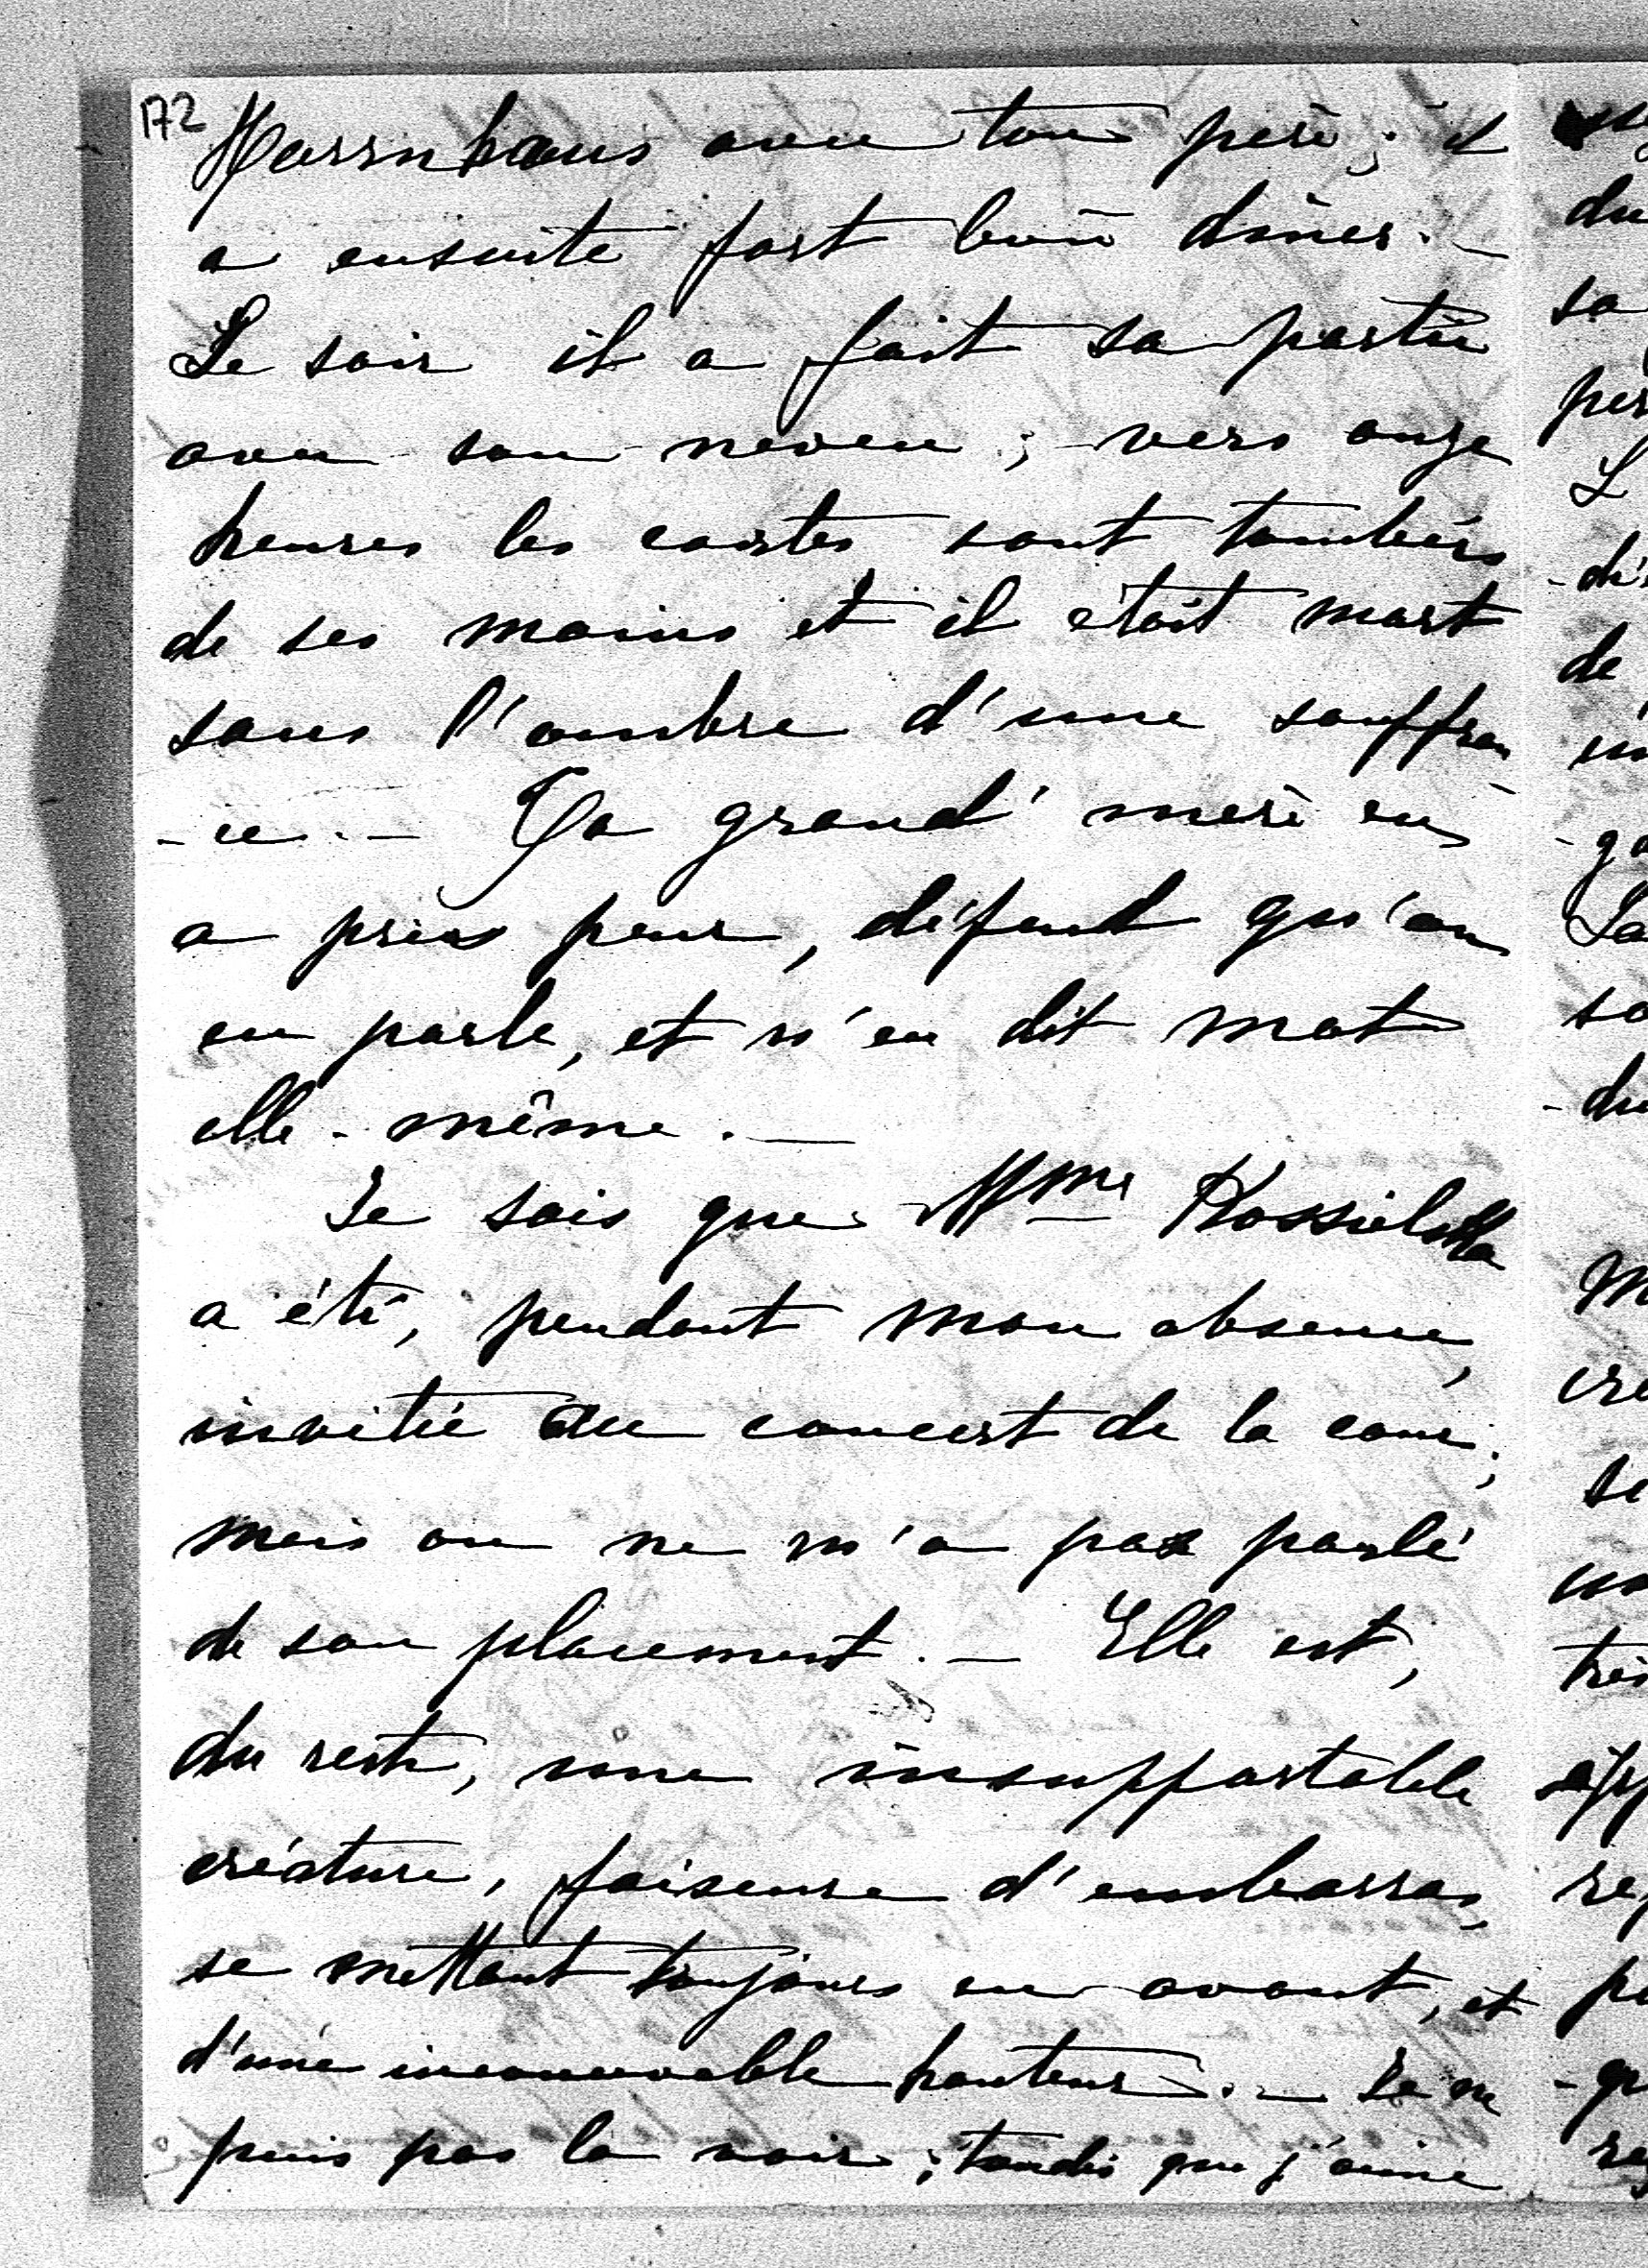 172
Herrnhaus avec ton père ; il
a ensuite fort bien dîner. —
Le soir il a fait sa partie
avec son neveu ; vers onze
heures les cartes sont tombées
de ses mains et il était mort
sans l'ombre d'une souffran
- ce. — Ta grand' mère en
a pris peur, défend qu'on
en parle, et n'en dit mot
elle-même. —
Je sais que Mme Kossielska
a été, pendant mon absence,
invitée au concert de la cour ;
mais on ne m'a pas parlé
de son placement. — Elle est,
du reste, une insupportable
créature, faiseuse d'embarras,
se mettant toujours en avant, et
d'une inconcevable hauteur. — Je ne
puis pas la voir ; tandis que j'aime